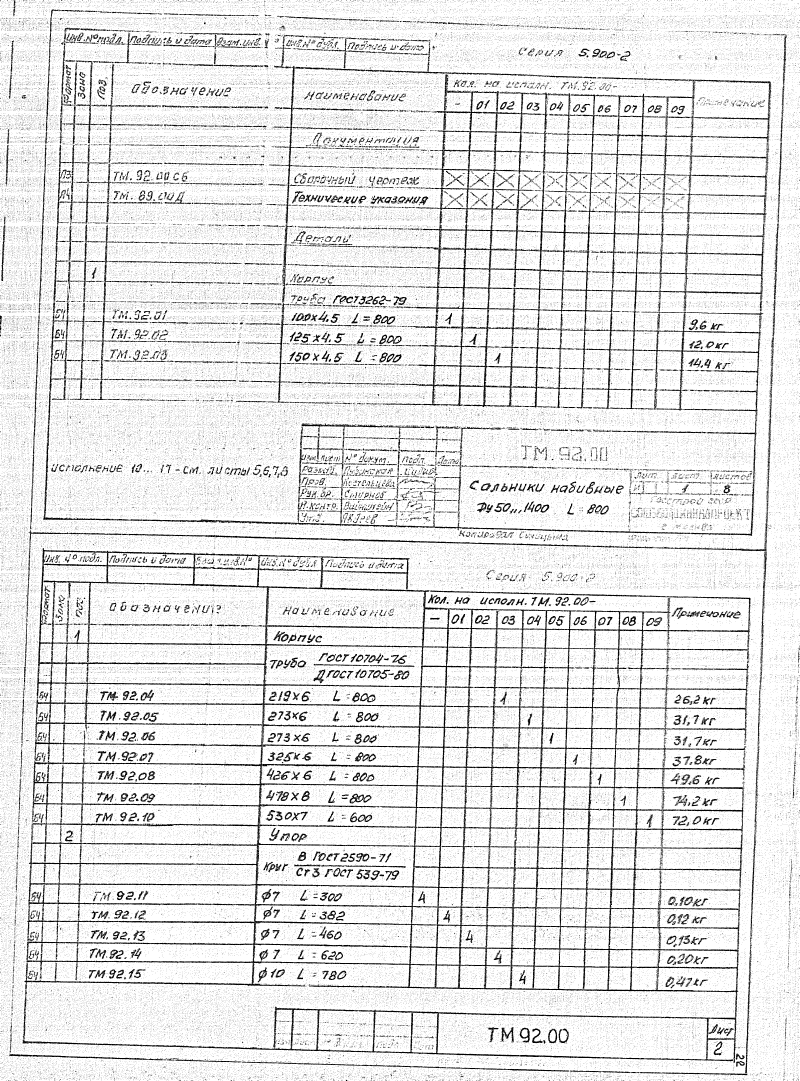 Инв.№подл. Подпись и дата Взам.инв. Инв.№дубл. Подпись и дата
Серия 5.900-2
Формат Зона Поз. Обозначение Наименование Кол. на исполн. ТМ.92.00- Примечание
- 01 02 03 04 05 06 07 08 09
Документация
ТМ.92.00 СБ Сборочный чертеж
ТМ.89.00Д Технические указания
Детали
1 Корпус
Труба ГОСТ 3262-79
БЧ ТМ.92.01 100х4.5 L=800 1 9.6 кг
БЧ ТМ.92.02 125х4.5 L=800 1 12,0 кг
БЧ ТМ.92.03 150х4.5 L=800 1 14,4 кг
Исполнение 10... 17 - см. листы 5,6,7,8
ТМ.92.00
Изм. Лист № докум. Подп. Дата
Разраб.
Пров.
Рук.бр. Смирнов
Н.контр.
Утв.
Сальники набивные
Ду 50...1400 L=800
Лит. Лист Листов
1 8
Копировал
Инв.№подл. Подпись и дата Взам.инв.№ Инв.№дубл. Подпись и дата
Серия 5.900-2
Формат Зона Поз. Обозначение Наименование Кол. на исполн. ТМ.92.00- Примечание
- 01 02 03 04 05 06 07 08 09
1 Корпус
Труба ГОСТ 10704-76
Д ГОСТ 10705-80
БЧ ТМ.92.04 219х6 L=800 1 26,2 кг
БЧ ТМ.92.05 273х6 L=800 1 31,7 кг
БЧ ТМ.92.06 273х6 L=800 1 31,7 кг
БЧ ТМ.92.07 325х6 L=800 1 37.8 кг
БЧ ТМ.92.08 426х6 L=800 1 49,6 кг
БЧ ТМ.92.09 478х8 L=800 1 74,2 кг
БЧ ТМ.92.10 530х7 L=600 1 72,0 кг
2 Упор
Круг В ГОСТ 2590-71
Ст3 ГОСТ 539-79
БЧ ТМ.92.11 ф7 L=300 4 0,10 кг
БЧ ТМ.92.12 ф7 L=382 4 0,12 кг
БЧ ТМ.92.13 ф7 L=460 4 0,15 кг
БЧ ТМ.92.14 ф7 L=620 4 0,20 кг
БЧ ТМ.92.15 ф10 L=780 4 0,47 кг
ТМ.92.00
Лист
2
22